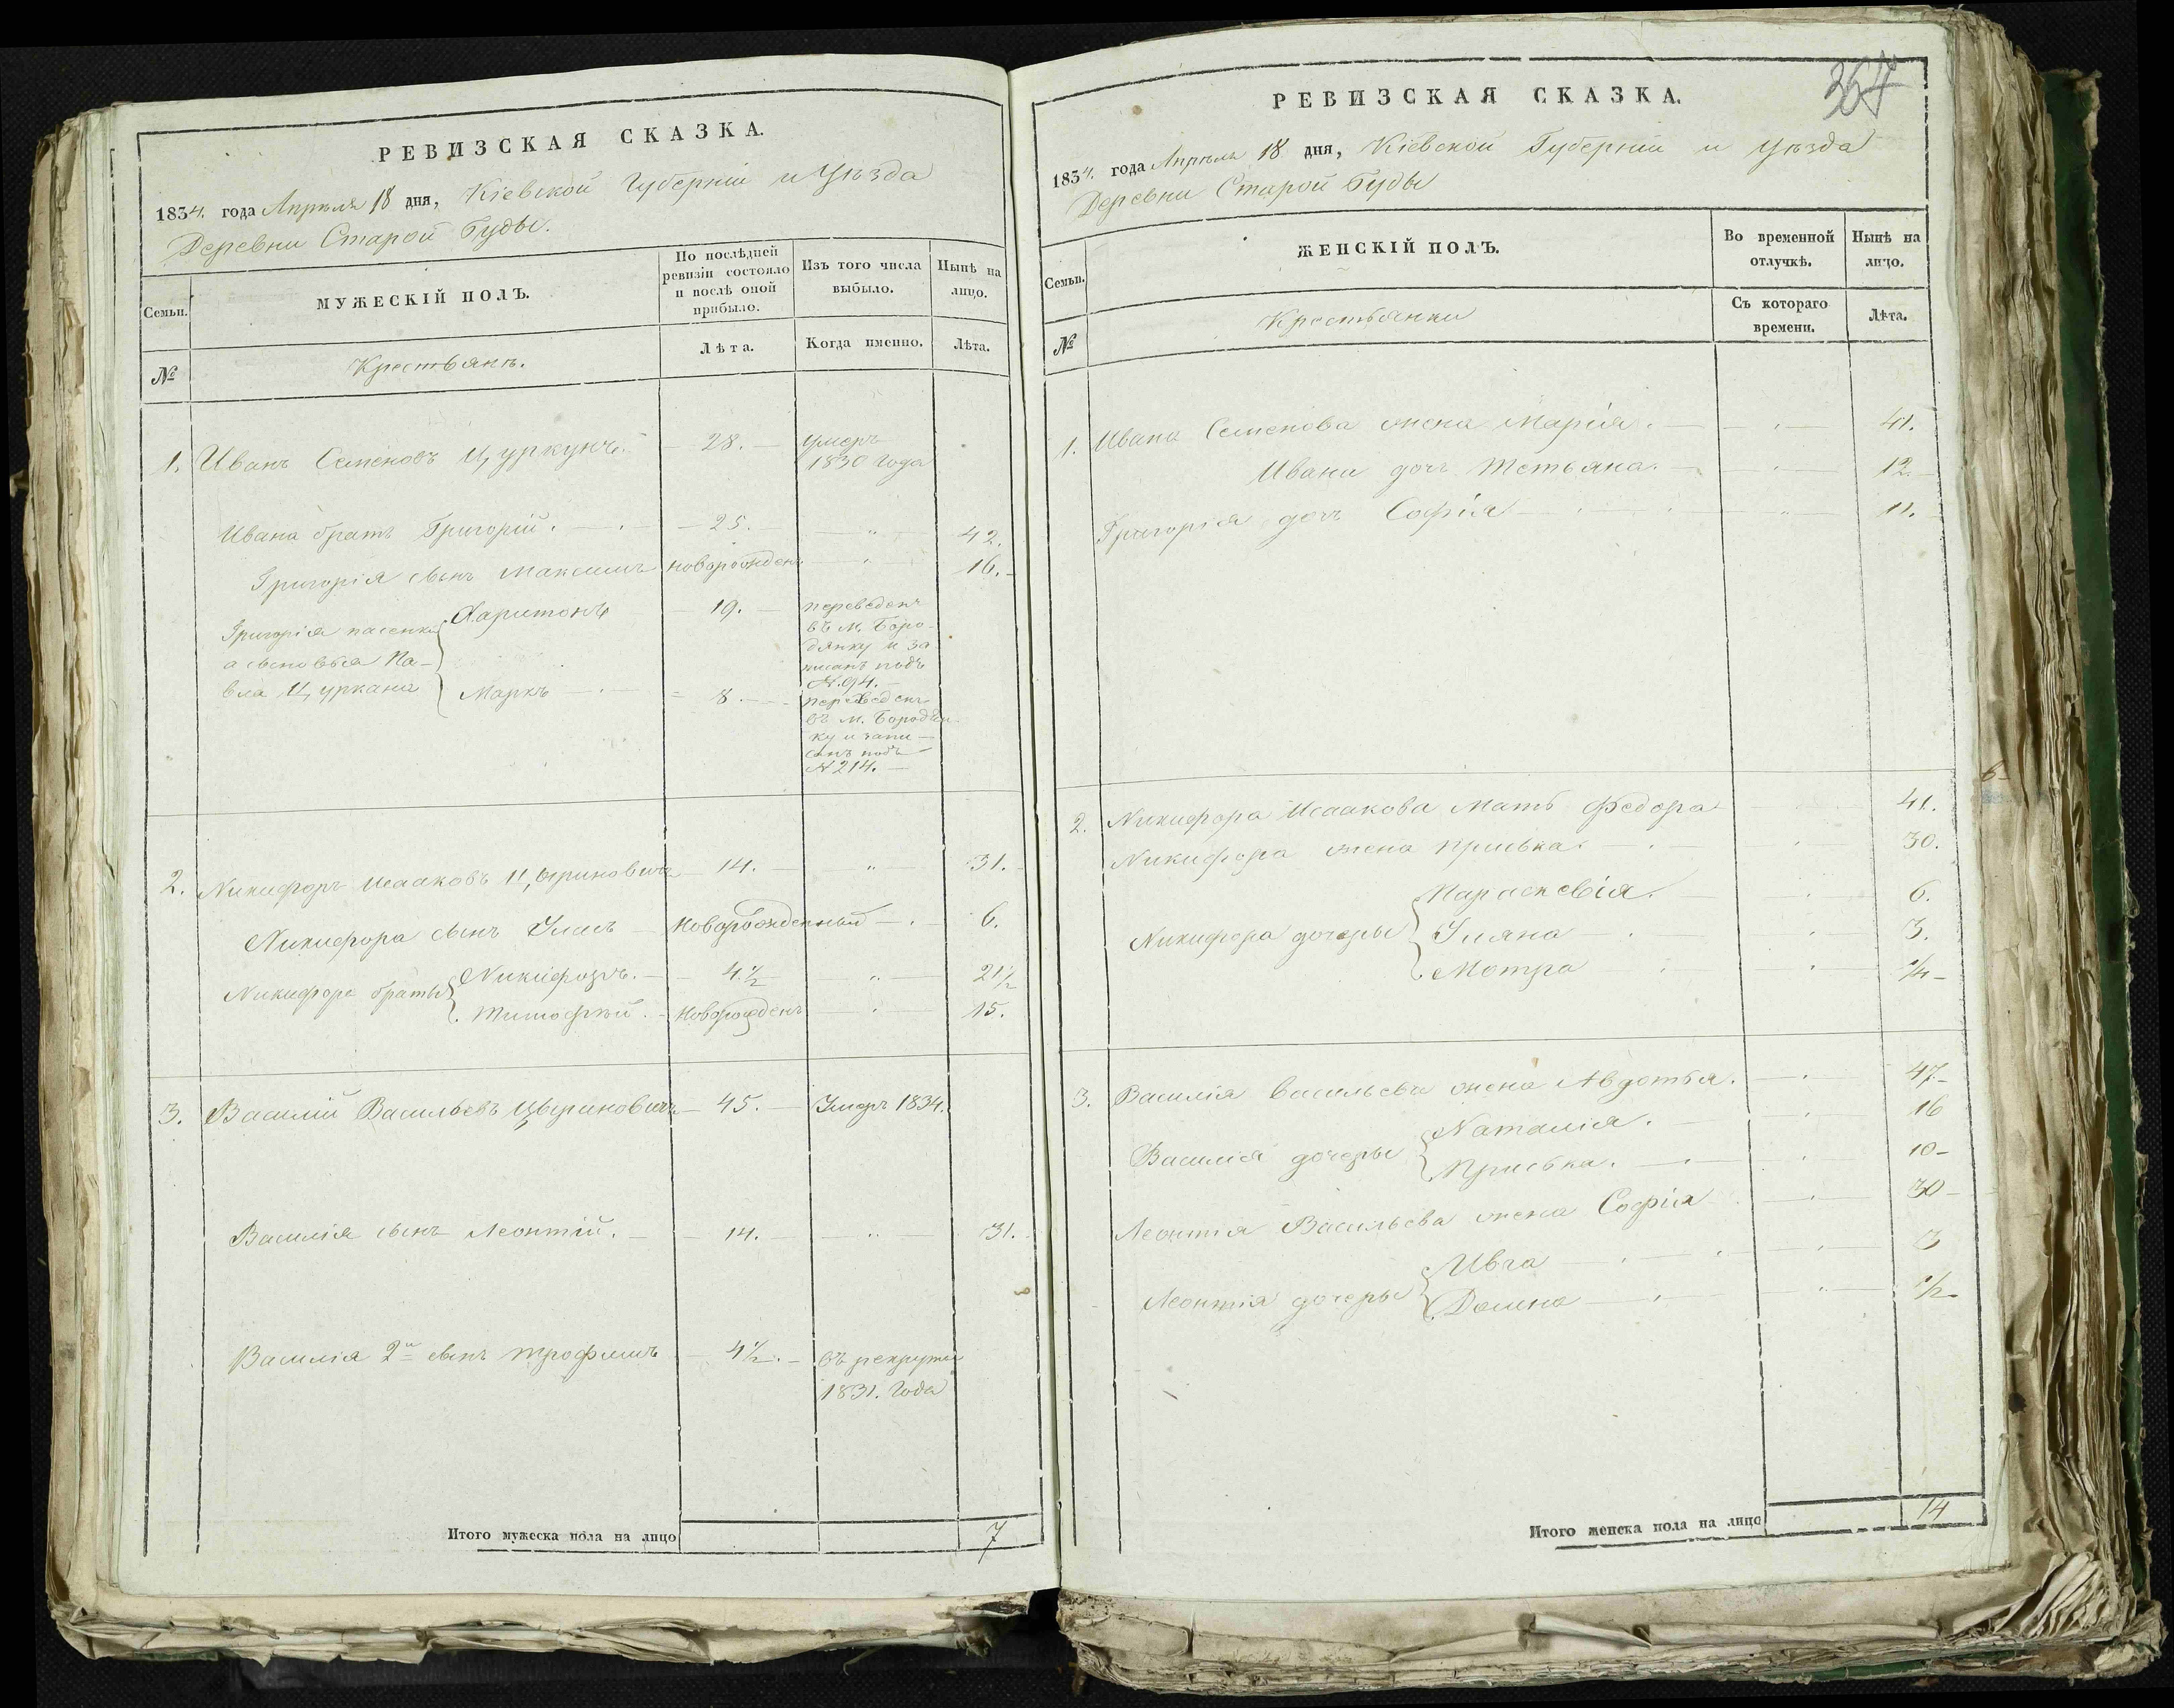 РЕВИЗСКАЯ СКАЗКА.
1834. года Апрѣля 18 дня, Кіевской Губерніи и Уѣзда
Деревни Старой Буды.
Семьи.
МУЖЕСКІЙ ПОЛЪ.
По послѣдней ревизіи состояло и послѣ оной прибыло.
Изъ того числа выбыло.
Нынѣ на лицо.
№
Крестьянъ.
Лѣта.
Когда именно.
Лѣта.
1. Иванъ Семеновъ Цуркунъ. 28. умеръ 1830 года
Ивана братъ Григорій. 25. „ 42.
Григорія сынъ Максимъ новорожденъ „ 16.
Григорія пасенки
а сыновья Па-
вла Цуркана
Харитонъ 19. переведенъ
въ м. Боро-
дянку и за
писанъ подъ
№. 94.
Марко 8. переведенъ
въ м. Бородян-
ку и запи-
санъ подъ
№ 214.
2. Никифоръ Исааковъ Цыриновичъ 14. „ 31.
Никифора сынъ Уласъ Новорожденный 6.
Никифора браты Никифоръ. 4 1/2 „ 21 1/2
Тимофѣй. Новорожденъ „ 15.
3. Василій Васильевъ Цыриновичъ 45. Умеръ 1834.
Василія сынъ Леонтій. 14. „ 31.
Василія 2й сынъ Трофимъ 4 1/2. въ рекруты
1831. года
Итого мужеска пола на лицо 7
367
РЕВИЗСКАЯ СКАЗКА.
1834. года Апрѣля 18 дня, Кіевской Губерніи и Уѣзда
Деревни Старой Буды
Семьи.
ЖЕНСКІЙ ПОЛЪ.
Во временной отлучкѣ.
Нынѣ на лицо.
№
Крестьянки
Съ котораго времени.
Лѣта.
1. Ивана Семенова жена Марія. „ 41.
Ивана дочь Тетьяна. „ 12.
Григорія дочь Софія „ 11.
2. Никифора Исаакова Мать Федора 41.
Никифора жена Приська. 30.
Никифора дочеры
Параскевія. 6.
Уляна 3.
Мотра 1/4
3. Василія Васильева жена Авдотья. 47
Василія дочеры
Наталія. 16
Приська. 10
Леонтія Васильева жена Софія 30
Леонтія дочеры
Ивга 3
Домна 1/2
Итого женска пола на лицо 14